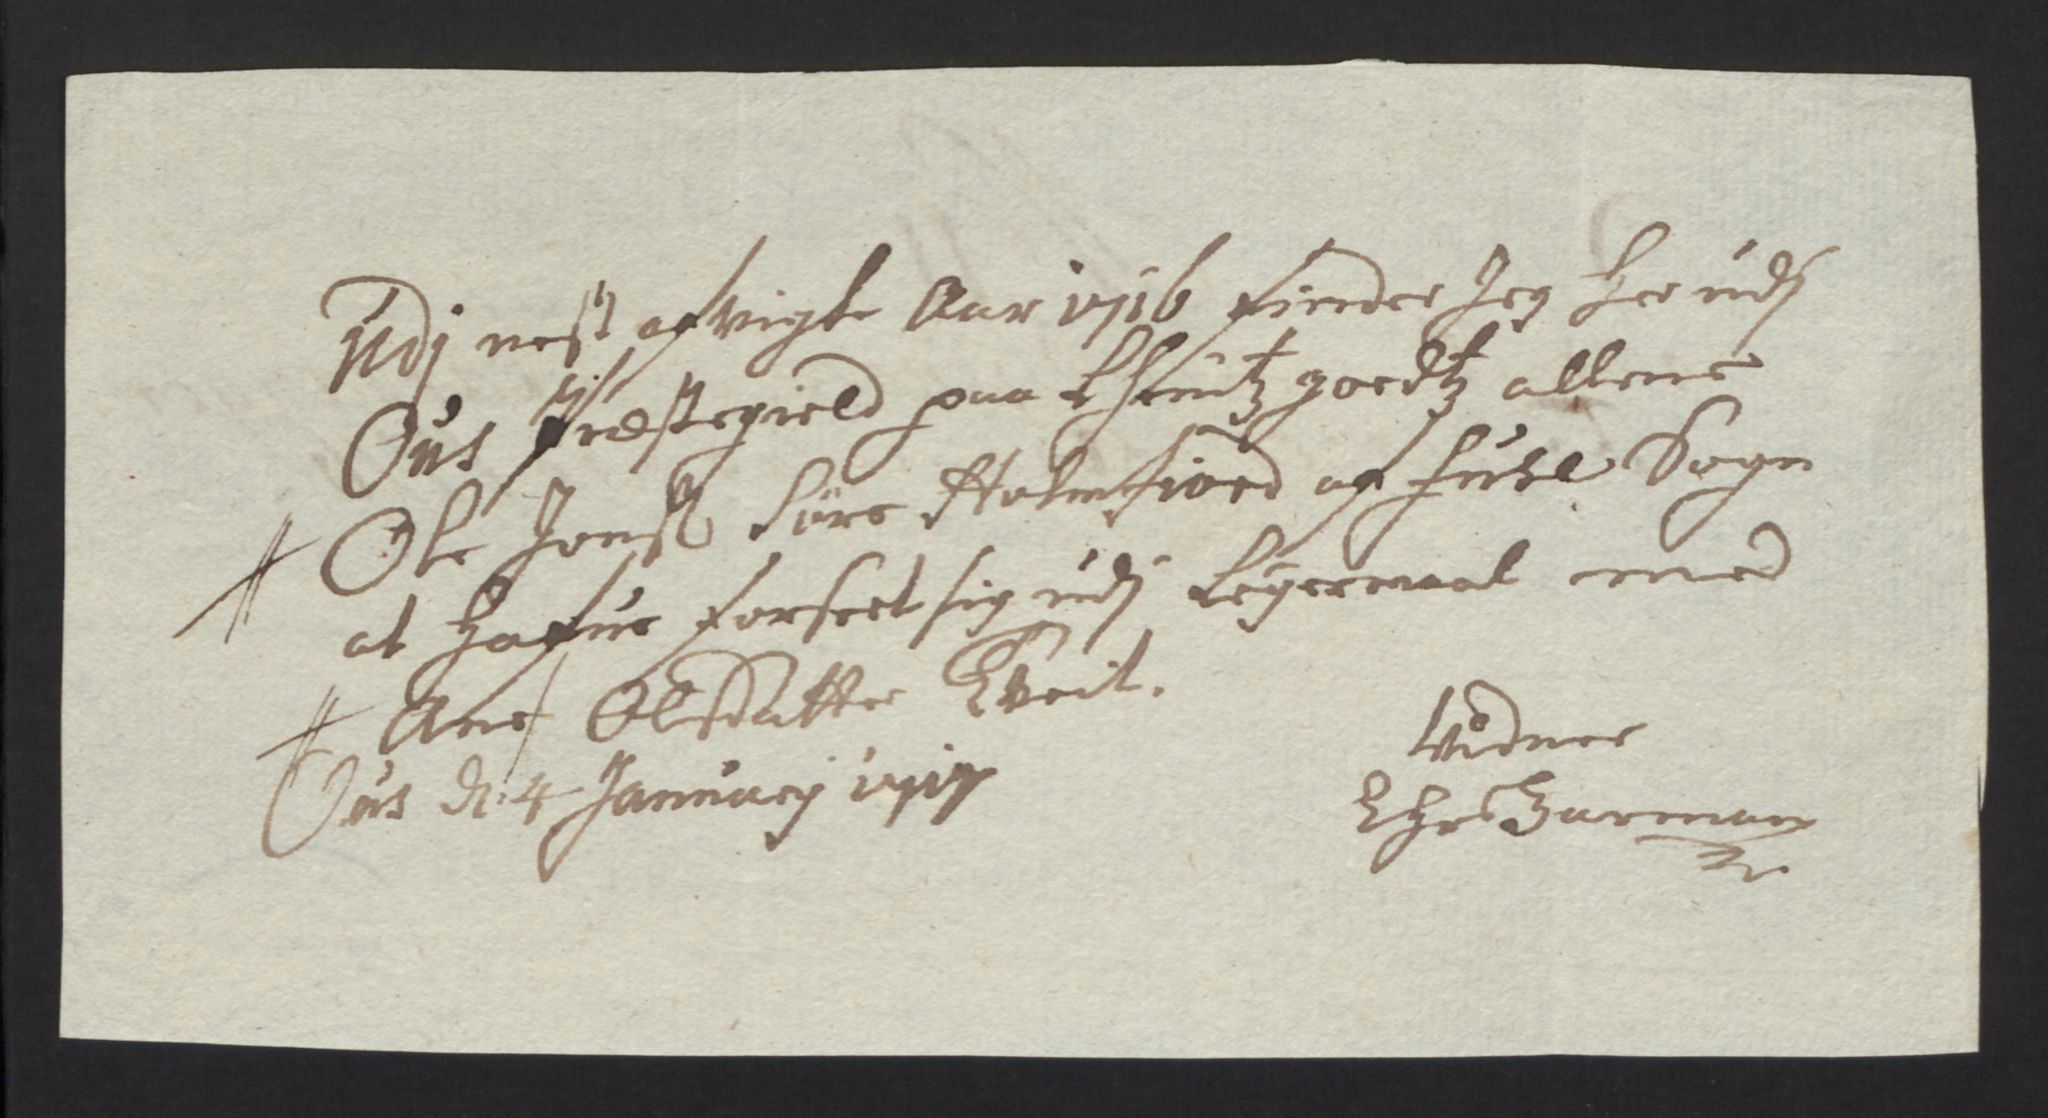 Udj nest afvigte Aar 1716 finder Jeg her udj
Ous Præstegield paa Lheütz goedtz allene
Ole Jonsß Søre Holmefiord af Huse Sogn
at hafue forseet sig udj Leyermaal med
Ane Olsdatter Tveit.
Ous d: 4 January 1717
Vidner
Chr Harman